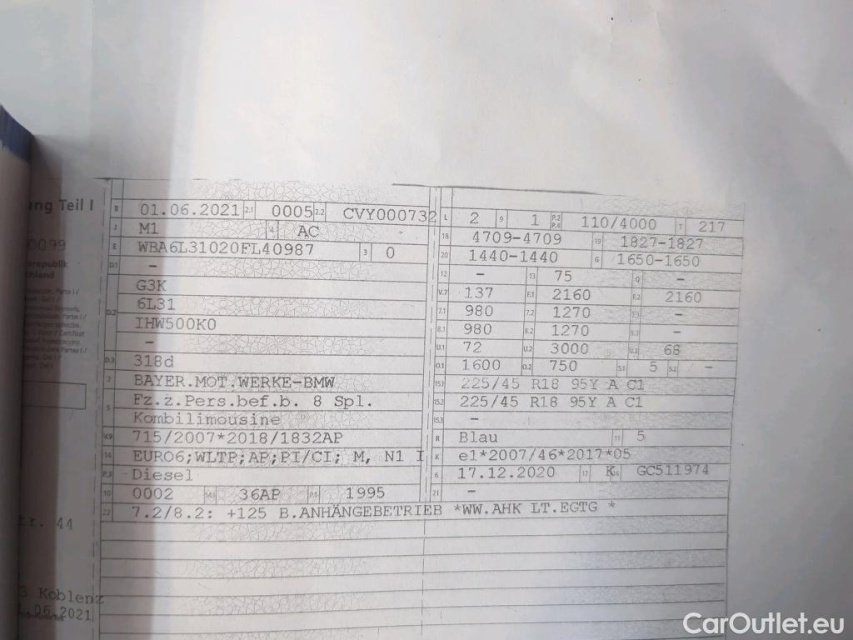 ng Teil I
B 01.06.2021 2.1 0005 2.2 CVY000732 L 2 9 1 P.2 P.4 110/4000 T 217
J M1 4 AC - 18 4709-4709 19 1827-1827
E WBA6L31020FL40987 3 0 20 1440-1440 G 1650-1650
D.1 - 12 - 13 75 Q -
G3K V.7 137 F.1 2160 F.2 2160
D.2 6L31 7.1 980 7.2 1270 7.3 -
IHW500K0 8.1 980 8.2 1270 8.3 -
- U.1 72 U.2 3000 U.3 68
D.3 318d O.1 1600 O.2 750 S.1 5 S.2 -
2 BAYER.MOT.WERKE-BMW 15.1 225/45 R18 95Y A C1
5 Fz.z.Pers.bef.b. 8 Spl. 15.2 225/45 R18 95Y A C1
Kombilimousine 15.3 -
V.9 715/2007*2018/1832AP R Blau 11 5
14 EURO6;WLTP;AP;PI/CI; M, N1 I K e1*2007/46*2017*05
P.3 Diesel 6 17.12.2020 17 K 16 GC511974
10 0002 14.1 36AP P.1 1995 21 -
22 7.2/8.2: +125 B.ANHÄNGEBETRIEB *WW.AHK LT.EGTG *
44
Koblenz
.06.2021
CarOutlet.eu